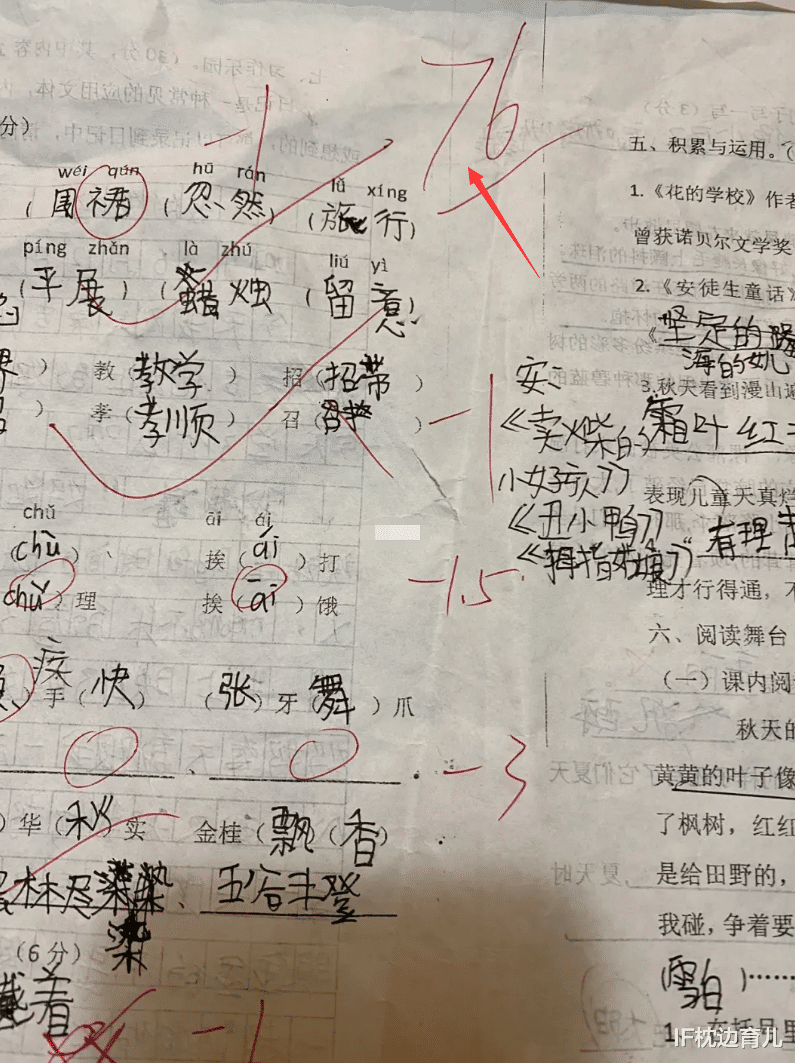 76
分)
-1
wéi qún hū rán lǚ xíng
(围裙) (忽然) (旅行)
píng zhǎn là zhú liú yì
(平展) (蜡烛) (留意)
) 教(教学) 招(招带)
) 孝(孝顺) 召( )
-1
chǔ āi ái
(chù) 、 挨(ái)打
chǔ)理 挨(āi)饿
-1.5
疾
)手(快) (张)牙(舞)爪
、 .
-3
)华(秋)实 金桂(飘)(香)
林尽染、五谷丰登
染
(6分)
戴着
-1
五、积累与运用。
1.《花的学校》作者
曾获诺贝尔文学奖
2.《安徒生童话》
《坚定的
海的
安、
《卖火柴的
小女孩》
《丑小鸭》
《拇指姑娘》
3.秋天看到漫山遍
霜叶红
表现儿童天真烂
有理
理才行得通，不
六、阅读舞台
(一)课内阅
秋天的
黄黄的叶子像
了枫树，红红
是给田野的，
我碰，争着要
(雪白)……
1.在括号里
IF枕边育儿